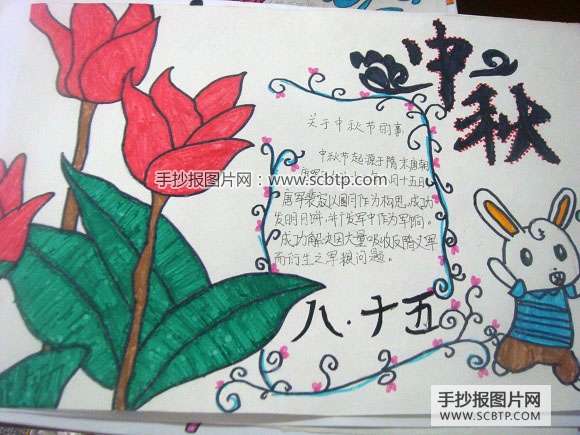 中秋
关于中秋节的事
中秋节起源于隋末唐朝
手抄报图片网:www.scbtp.com
月十五日
唐军裴寂以圆月作为构思,成功
发明月饼,并广发军中作为军饷。
成功解决因大量吸收反隋义军
而衍生之军粮问题。
八·十五
手抄报图片网
WWW.SCBTP.COM